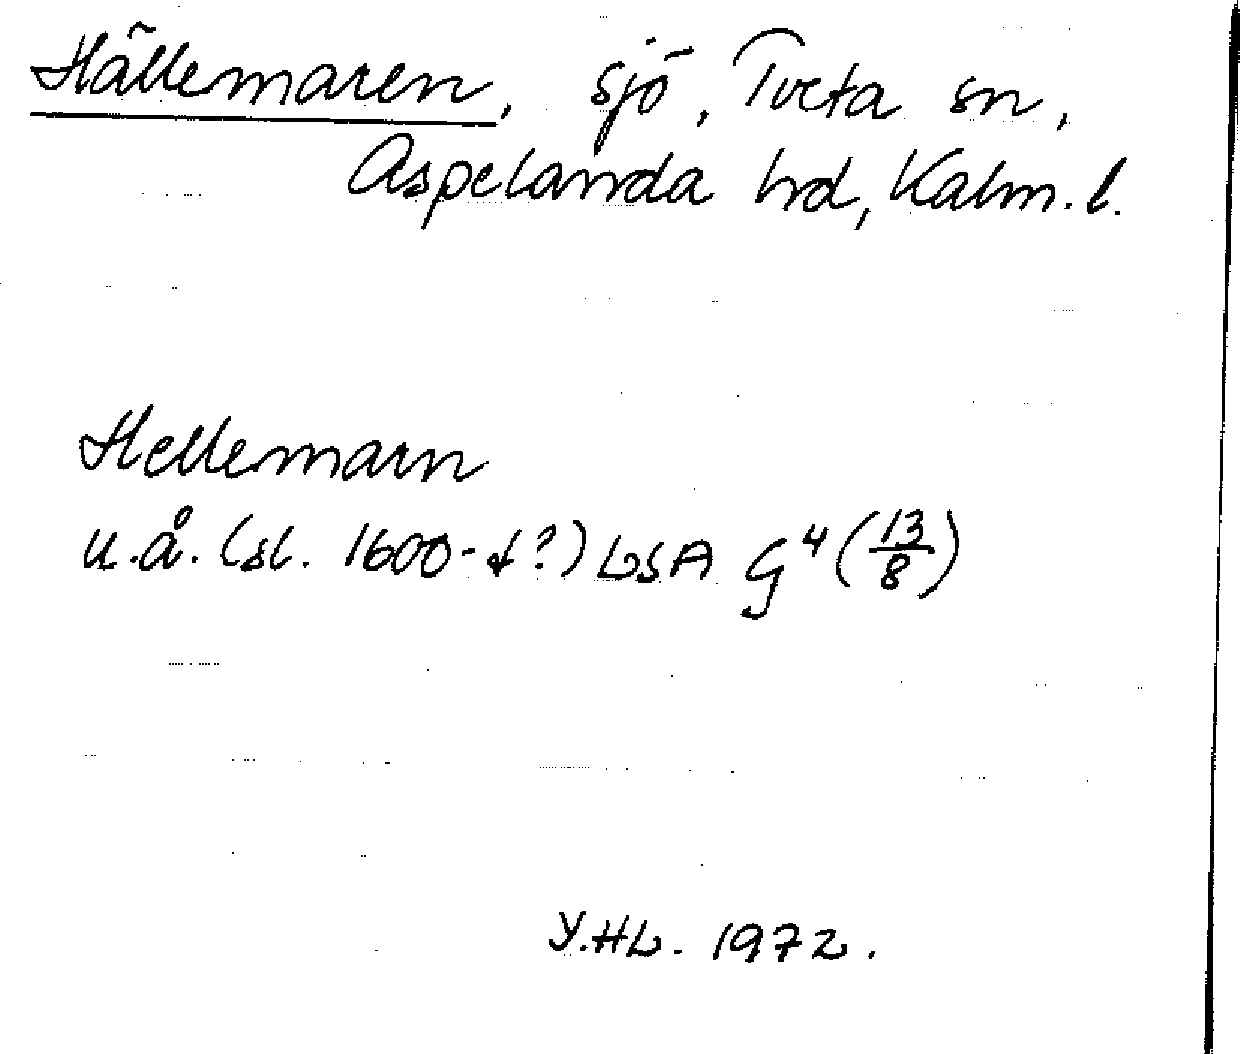 Hällemaren, sjö, Tveta sn,
Aspelanda hd, Kalm. l.
Hellemarn
u.å. (sl. 1600-t?) LSA G⁴ (13/8)
Y.HL. 1972.